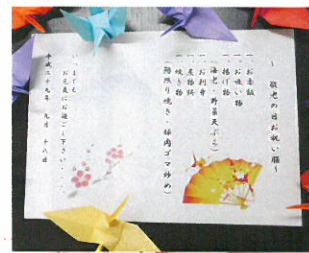 ～ 敬老の日お祝い膳～
一、お赤飯
一、お吸い物
一、揚げ物
（海老・野菜天ぷら）
一、お刺身
一、煮物
一、焼き物
（照り焼き・豚肉ゴマ炒め）
いつまでも
お元気にお過ごし下さい・・・
平成二十九年 九月 十八日